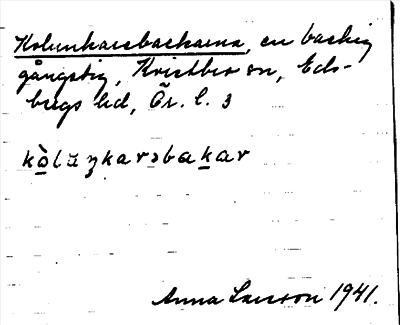 Kolunkarsbackarna, en backig
gångstig, Kvistbro sn, Eds-
bergs hd, Ör. l. 3
kòlaŋkarsbakar
Anna Larsson 1941.